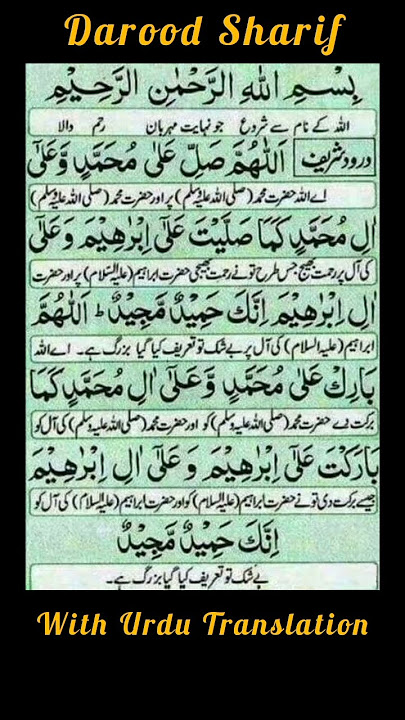 Darood Sharif
بِسْمِ اللهِ الرَّحْمٰنِ الرَّحِيْمِ
اللہ کے نام سے شروع جو نہایت مہربان رحم والا
درود شریف اَللّٰهُمَّ صَلِّ عَلٰى مُحَمَّدٍ وَّعَلٰٓى
اے اللہ حضرت محمد (صلی اللہ علیہ وسلم) پر اور حضرت محمد (صلی اللہ علیہ وسلم)
اٰلِ مُحَمَّدٍ كَمَا صَلَّيْتَ عَلٰٓى اِبْرٰهِيْمَ وَعَلٰٓى
کی آل پر رحمت بھیج جس طرح تو نے رحمت بھیجی حضرت ابراہیم (علیہ السلام) پر اور حضرت
اٰلِ اِبْرٰهِيْمَ اِنَّكَ حَمِيْدٌ مَّجِيْدٌ ط اَللّٰهُمَّ
ابراہیم (علیہ السلام) کی آل پر بے شک تو تعریف کیا گیا بزرگ ہے۔ اے اللہ
بَارِكْ عَلٰى مُحَمَّدٍ وَّعَلٰٓى اٰلِ مُحَمَّدٍ كَمَا
برکت دے حضرت محمد (صلی اللہ علیہ وسلم) کو اور حضرت محمد (صلی اللہ علیہ وسلم) کی آل کو
بَارَكْتَ عَلٰٓى اِبْرٰهِيْمَ وَعَلٰٓى اٰلِ اِبْرٰهِيْمَ
جیسے برکت دی تو نے حضرت ابراہیم (علیہ السلام) کو اور حضرت ابراہیم (علیہ السلام) کی آل کو
اِنَّكَ حَمِيْدٌ مَّجِيْدٌ
بے شک تو تعریف کیا گیا بزرگ ہے۔
With Urdu Translation